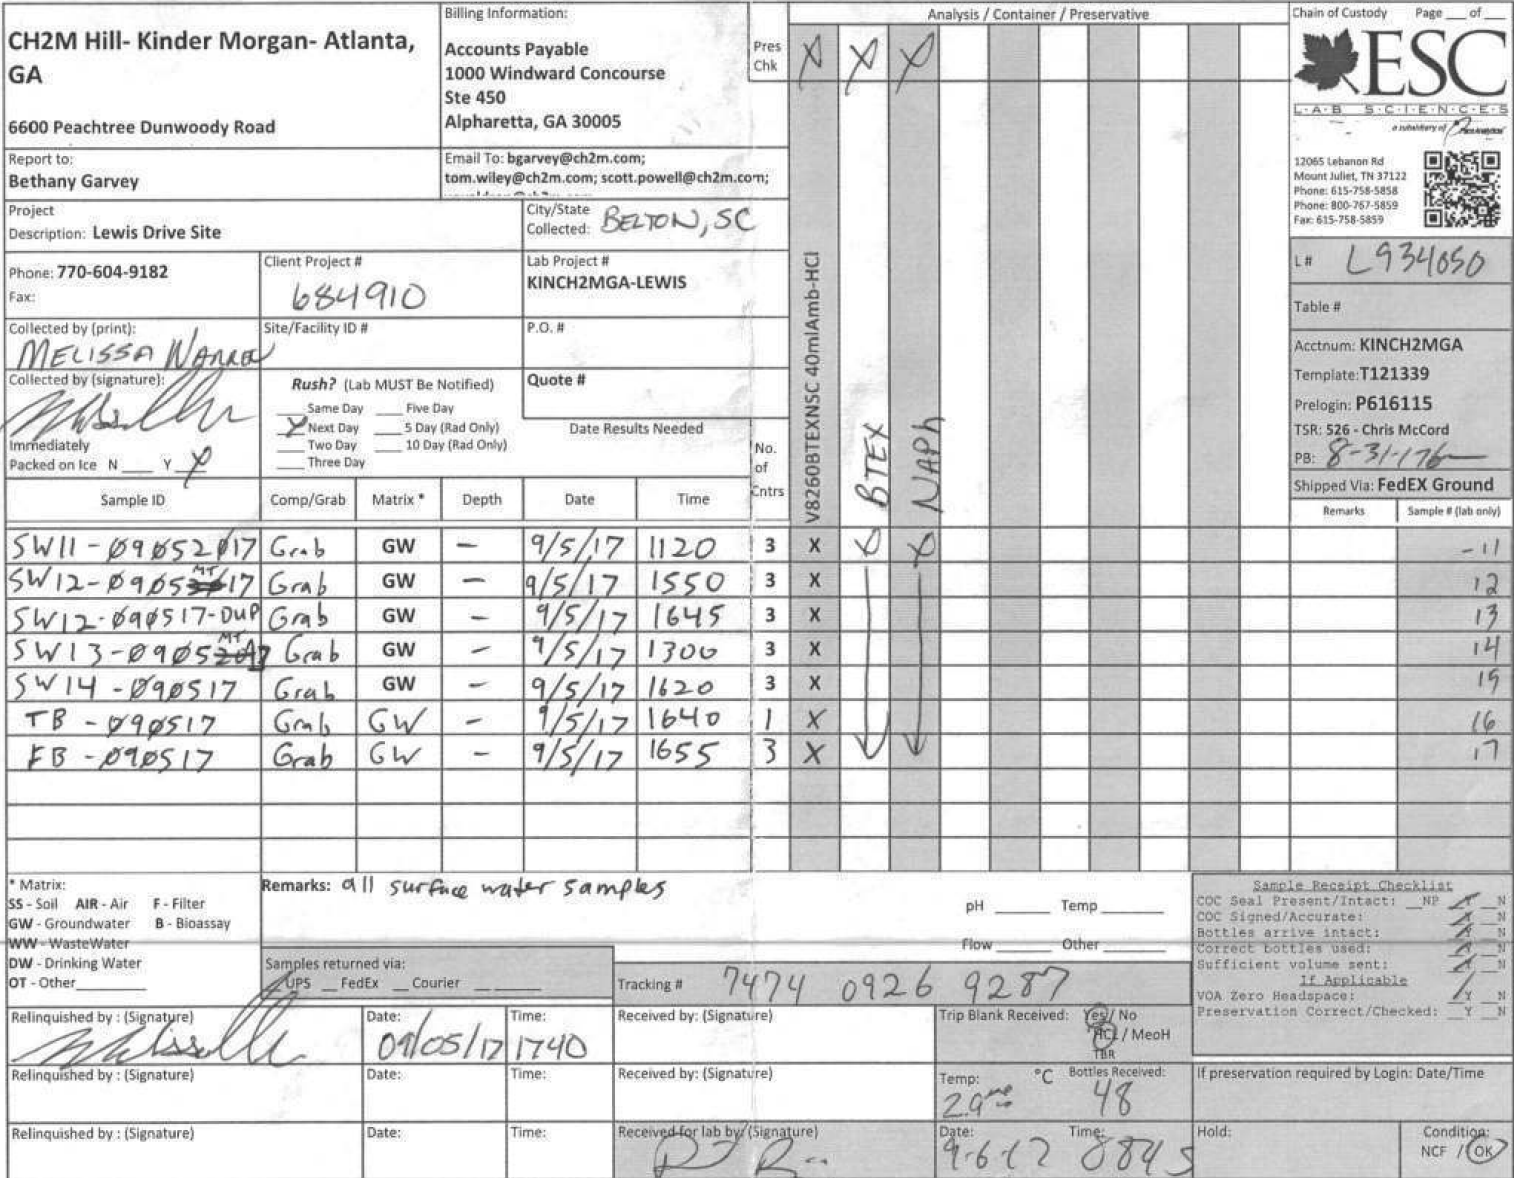 CH2M Hill- Kinder Morgan- Atlanta,
GA
6600 Peachtree Dunwoody Road
Billing Information:
Accounts Payable
1000 Windward Concourse
Ste 450
Alpharetta, GA 30005
Pres
Chk
Analysis / Container / Preservative
X X X
Chain of Custody Page ___ of ___
ESC
L·A·B S·C·I·E·N·C·E·S
a subsidiary of
12065 Lebanon Rd
Mount Juliet, TN 37122
Phone: 615-758-5858
Phone: 800-767-5859
Fax: 615-758-5859
Report to:
Bethany Garvey
Email To: bgarvey@ch2m.com;
tom.wiley@ch2m.com; scott.powell@ch2m.com;
Project
Description: Lewis Drive Site
City/State
Collected: BELTON, SC
Phone: 770-604-9182
Fax:
Client Project #
684910
Lab Project #
KINCH2MGA-LEWIS
L# L934050
Table #
Collected by (print):
MELISSA WARREN
Site/Facility ID #
P.O. #
Acctnum: KINCH2MGA
Template: T121339
Prelogin: P616115
TSR: 526 - Chris McCord
PB: 8-31-17
Shipped Via: FedEX Ground
Collected by (signature):
Immediately
Packed on Ice N ___ Y X
Rush? (Lab MUST Be Notified)
___ Same Day ___ Five Day
X Next Day ___ 5 Day (Rad Only)
___ Two Day ___ 10 Day (Rad Only)
___ Three Day
Quote #
Date Results Needed
No.
of
Cntrs
V8260BTEXNSC 40mlAmb-HCl
BTEX
NAPh
Sample ID Comp/Grab Matrix * Depth Date Time
Remarks Sample # (lab only)
SW11-09052017 Grab GW - 9/5/17 1120 3 X X X -11
SW12-090517 MT Grab GW - 9/5/17 1550 3 X 12
SW12-090517-DUP Grab GW - 9/5/17 1645 3 X 13
SW13-090517 MT Grab GW - 9/5/17 1300 3 X 14
SW14-090517 Grab GW - 9/5/17 1620 3 X 15
TB-090517 Grab GW - 9/5/17 1640 1 X 16
FB-090517 Grab GW - 9/5/17 1655 3 X 17
* Matrix:
SS - Soil AIR - Air F - Filter
GW - Groundwater B - Bioassay
WW - WasteWater
DW - Drinking Water
OT - Other
Remarks: all surface water samples
pH ___ Temp ___
Flow ___ Other ___
Samples returned via:
UPS __ FedEx __ Courier
Tracking # 7474 0926 9287
Sample Receipt Checklist
COC Seal Present/Intact: __NP Y __N
COC Signed/Accurate: Y __N
Bottles arrive intact: Y __N
Correct bottles used: Y __N
Sufficient volume sent: Y __N
If Applicable
VOA Zero Headspace: Y __N
Preservation Correct/Checked: __Y __N
Relinquished by : (Signature)
Date: 09/05/17
Time: 1740
Received by: (Signature)
Trip Blank Received: Yes / No
HCL / MeoH
TBR
Relinquished by : (Signature)
Date:
Time:
Received by: (Signature)
Temp: °C
2.9
Bottles Received:
48
If preservation required by Login: Date/Time
Relinquished by : (Signature)
Date:
Time:
Received for lab by: (Signature)
Date: 9-6-17
Time: 0845
Hold:
Condition:
NCF / OK